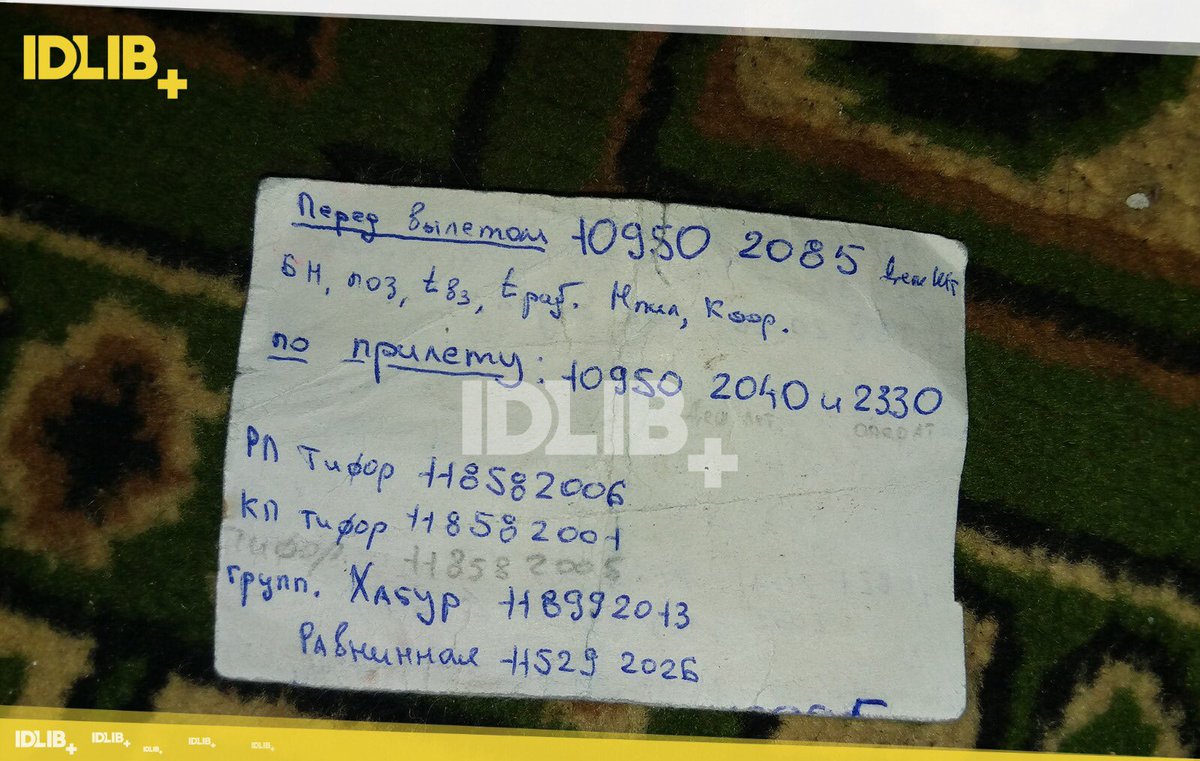 IDLIB+
Перед вылетом 10950 2085
БН, поз, tвз, tраб. Нпил, Коор.
по прилету: 10950 2040 и 2330
IDLIB+
РП Тифор 118582006
КП тифор 118582001
тифор 11858 2005
групп. Хабур 118992013
Равнинная 11529 2026
IDLIB+ IDLIB+ IDLIB+ IDLIB+ IDLIB+